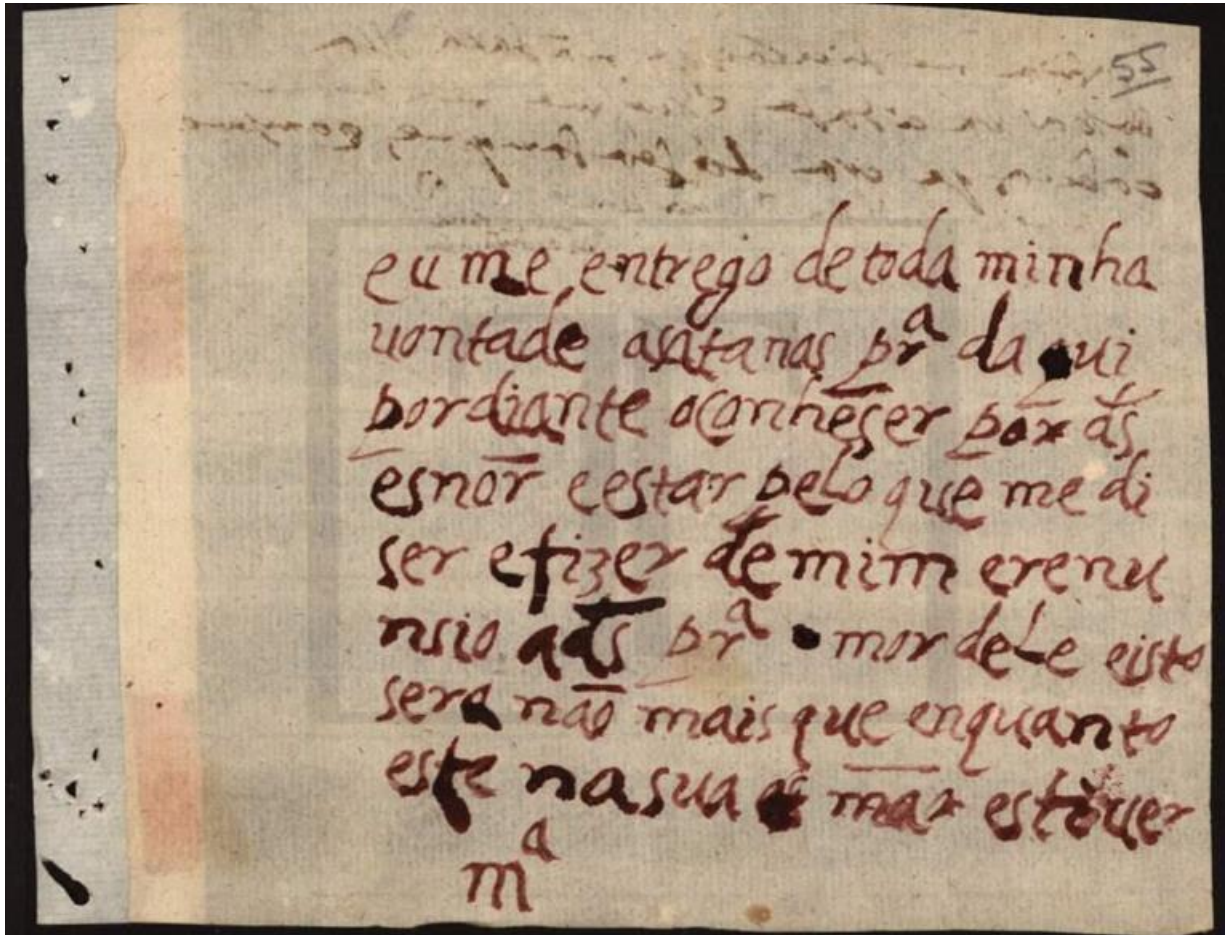 55
eu me entrego de toda minha
uontade asatanas pr^a da qui
por diante oconheser por ds
esnor eestar pelo que me di
ser efizer de mim erenu
nsio ads pr^a mor dele eisto
sera não mais que enquanto
este nasua mar estiuer
m^a